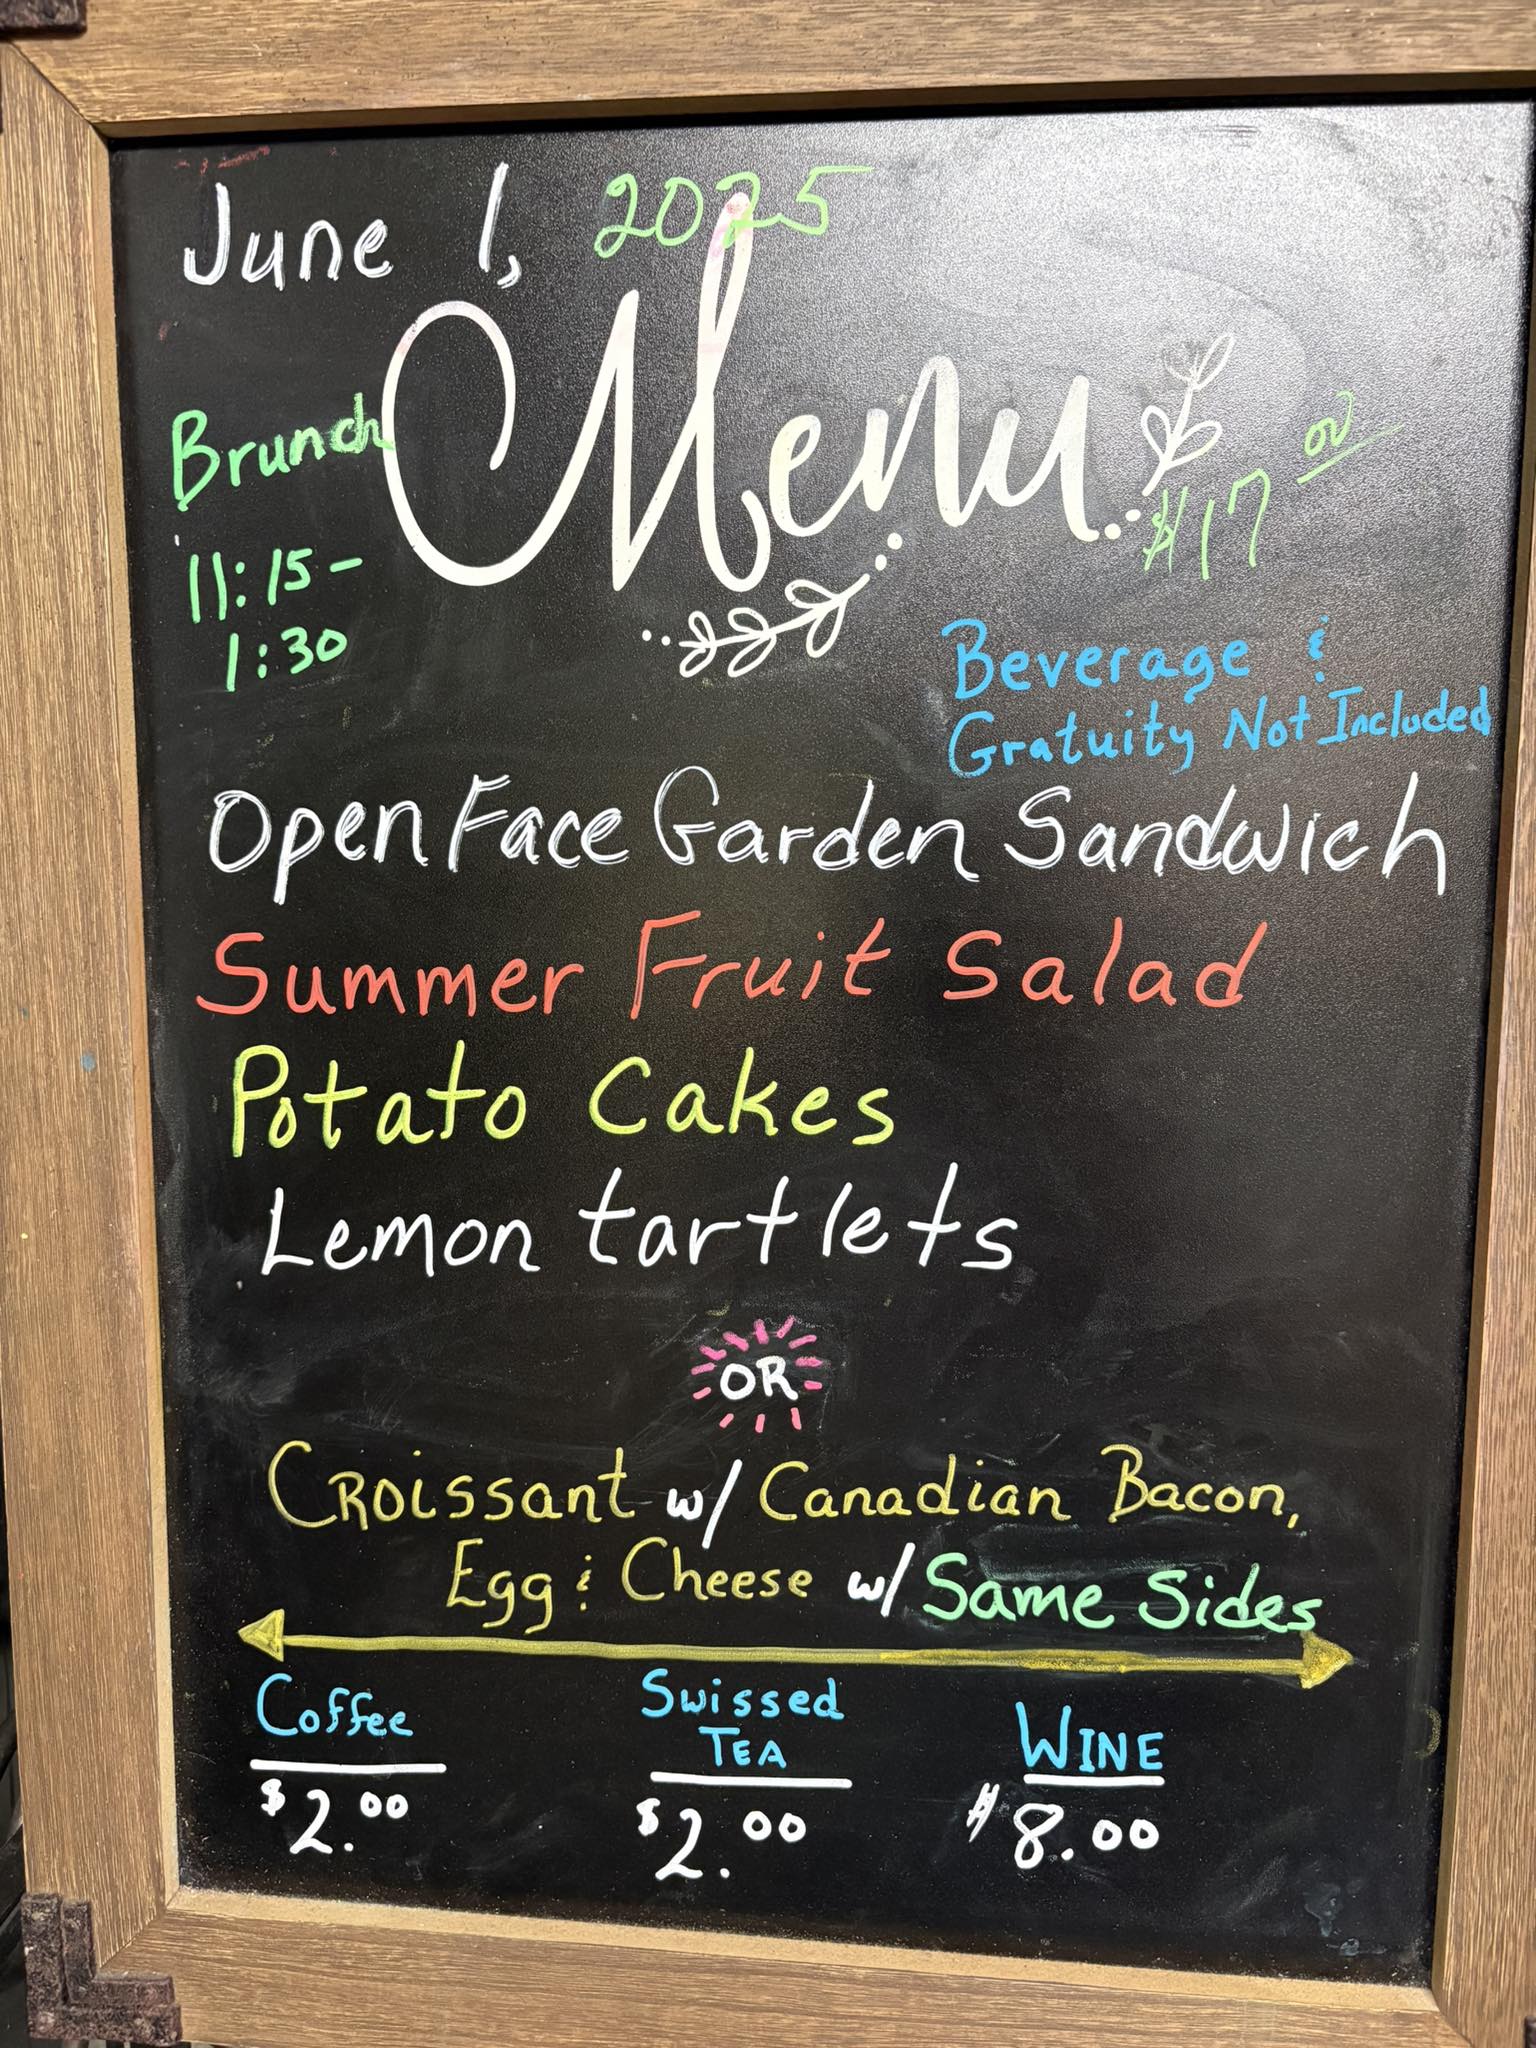 June 1, 2025
Menu
Brunch
11:15-
1:30
$17 00
Beverage &
Gratuity Not Included
Open Face Garden Sandwich
Summer Fruit Salad
Potato Cakes
Lemon tartlets
OR
Croissant w/ Canadian Bacon,
Egg & Cheese w/ Same Sides
Coffee
$2.00
Swissed
TEA
$2.00
WINE
$8.00